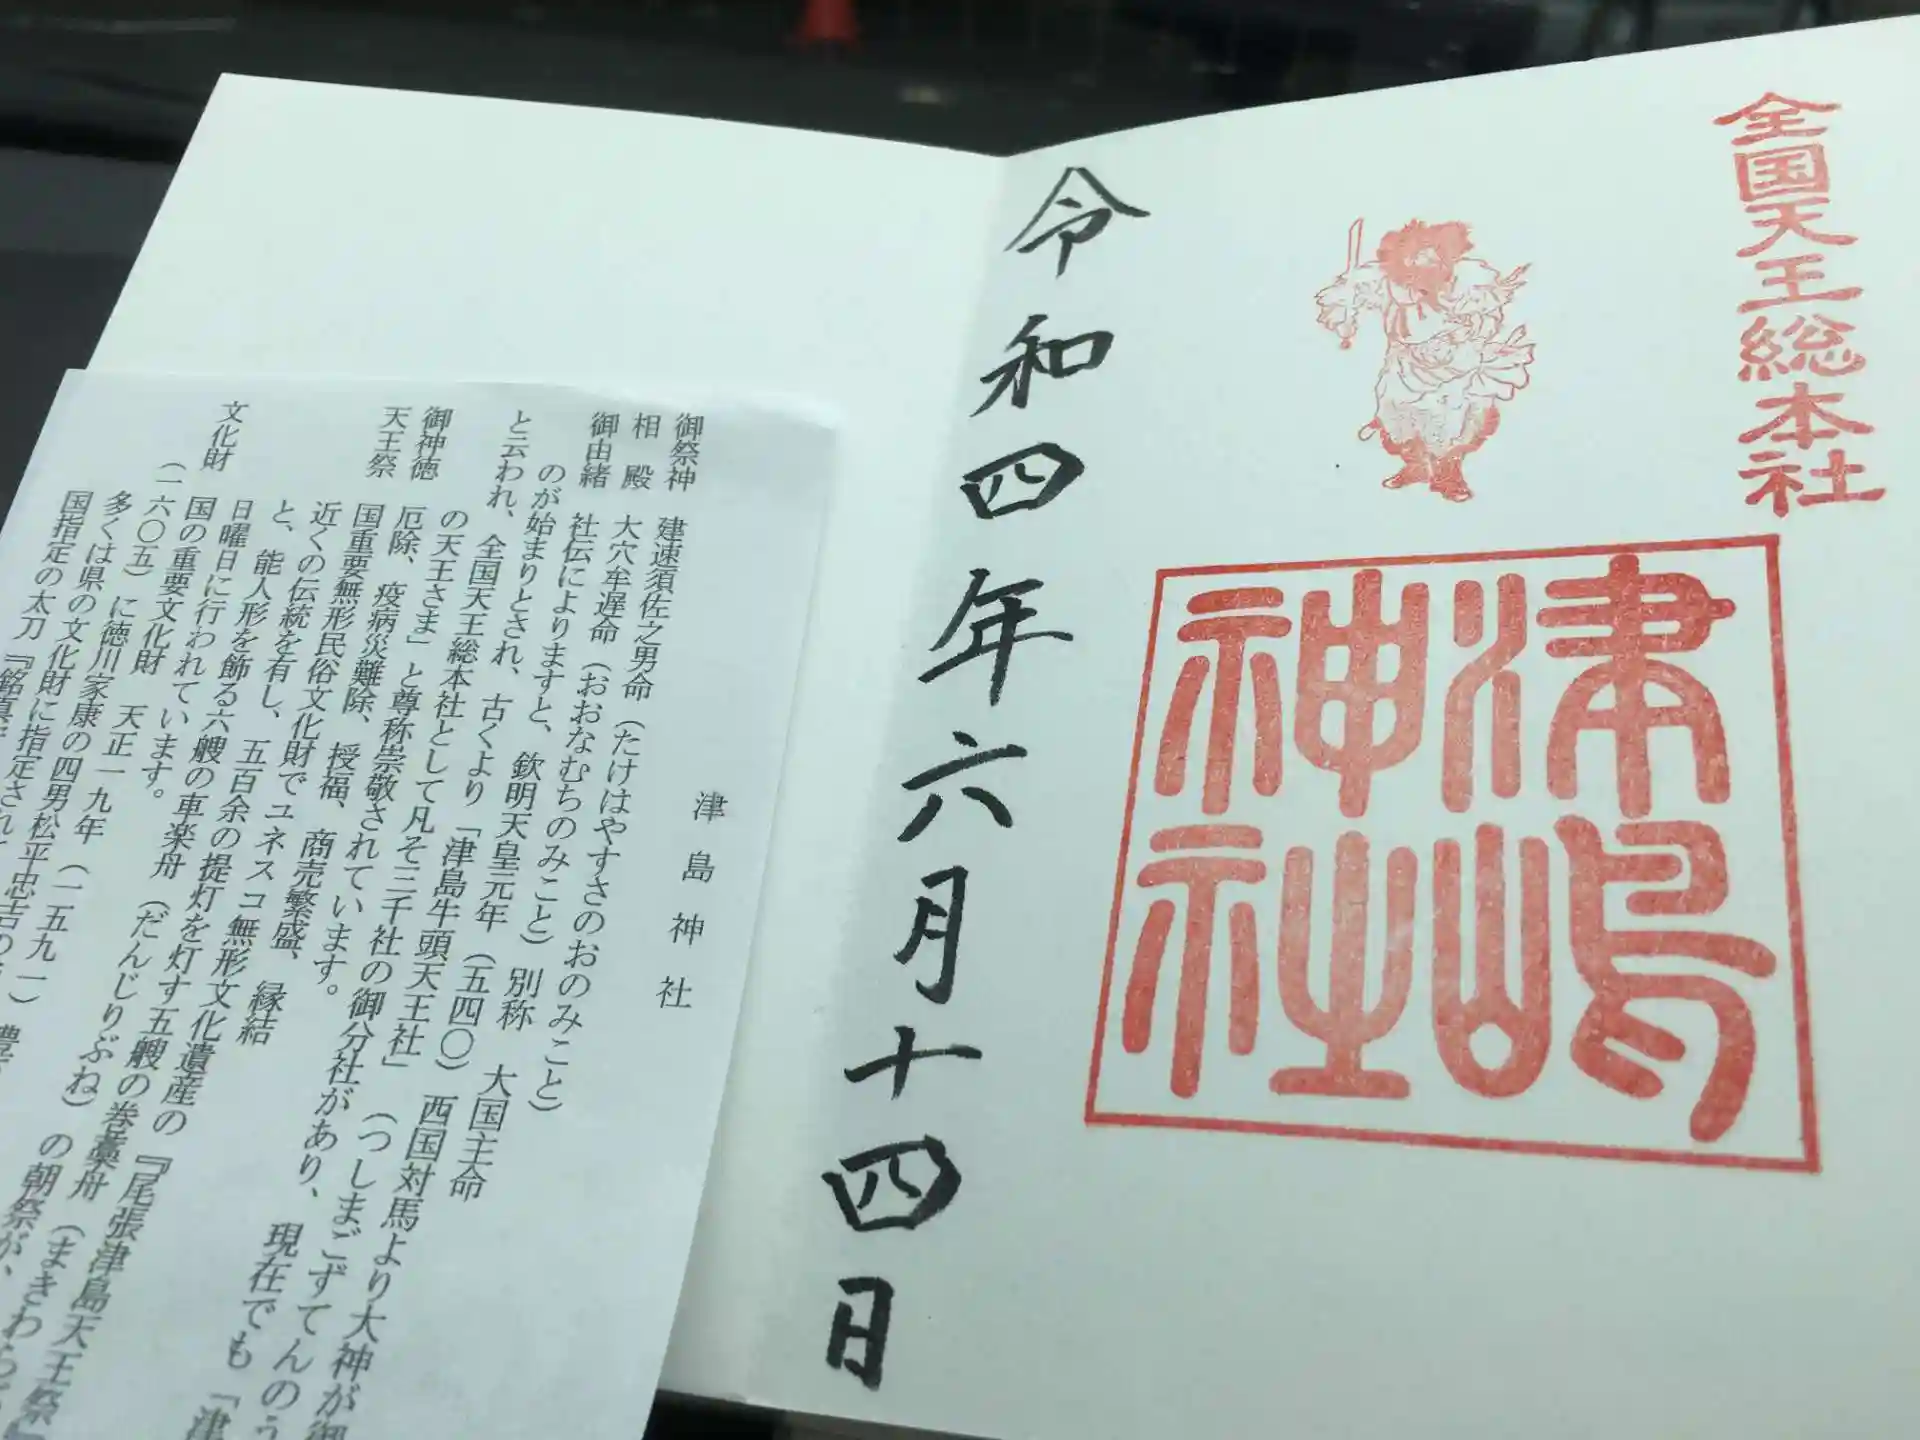 全国天王総本社
津嶋
神社
令和四年六月十四日
津島神社
御祭神　建速須佐之男命（たけはやすさのおのみこと）
相殿　大穴牟遅命（おおなむちのみこと）別称　大国主命
御由緒　社伝によりますと、欽明天皇元年（五四〇）西国対馬より大神が
のが始まりとされ、古くより「津島牛頭天王社」（つしまごずてんのう
と云われ、全国天王総本社として凡そ三千社の御分社があり、現在でも「津
の天王さま」と尊称崇敬されています。
御神徳　厄除、疫病災難除、授福、商売繁盛、縁結
天王祭　国重要無形民俗文化財でユネスコ無形文化遺産の『尾張津島天王祭』
近くの伝統を有し、五百余の提灯を灯す五艘の巻藁舟（まきわら
と、能人形を飾る六艘の車楽舟（だんじりぶね）の朝祭が、
日曜日に行われています。
文化財　国の重要文化財　天正一九年（一五九一）
（一六〇五）に徳川家康の四男松平忠吉の
多くは県の文化財に指定され
国指定の太刀『銘真